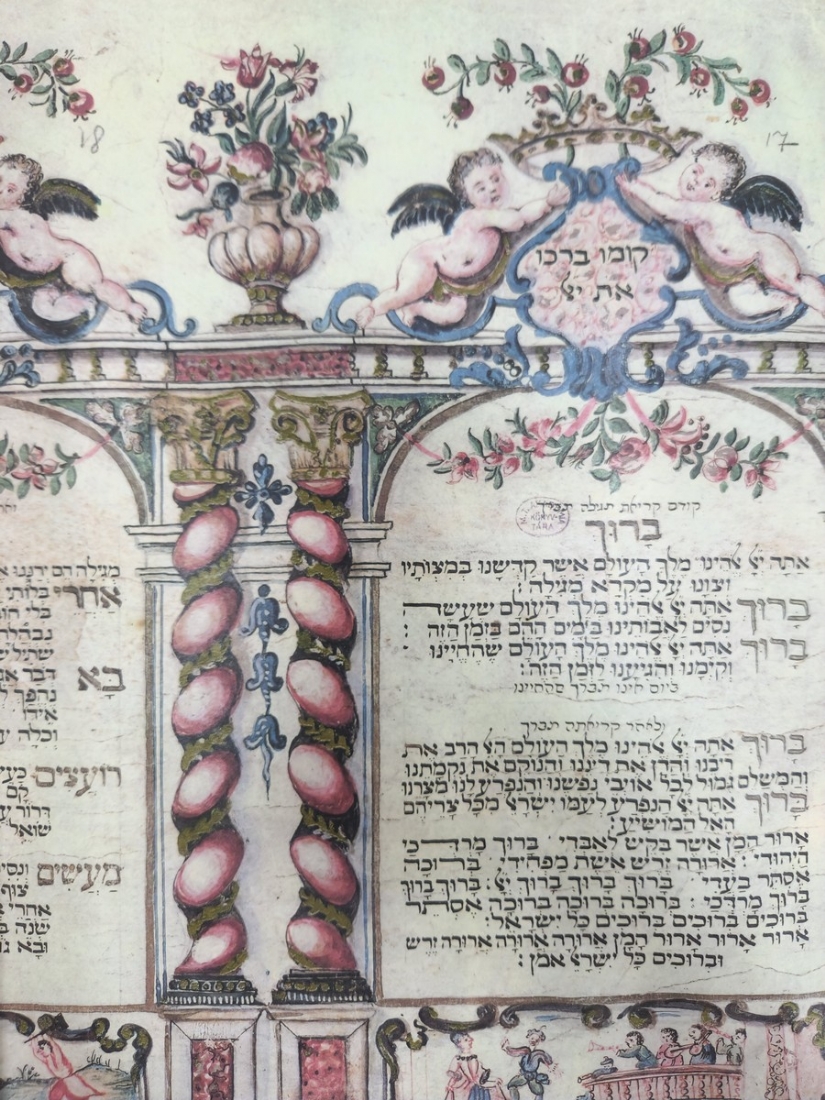 17
קומו ברכו
את יצ
18
קודם קריאת מגילה תברך
KÖNYV
TÁRA
ברוך
אתה יצ אהינו מלך העולם אשר קדשנו במצותיו
וצונו על מקרא מגילה:
ברוך אתה יצ אהינו מלך העולם שעשה
נסים לאבותינו בימים ההם בזמן הזה:
ברוך אתה יצ אהינו מלך העולם שהחיינו
וקימנו והגיענו לזמן הזה:
ביום אינו מברך שהחיינו
ולאחר קריאתה תברך
ברוך אתה יצ אהינו מלך העולם האל הרב את
ריבנו והדן את דיננו והנוקם את נקמתנו
והמשלם גמול לכל אויבי נפשנו והנפרע לנו מצרנו
ברוך אתה יצ הנפרע לעמו ישראל מכל צריהם
האל המושיע:
ארור המן אשר בקש לאבדי: ברוך מרדכי
היהודי: ארורה זרש אשת מפחידי: ברוכה
אסתר בעדי: ברוך ברוך ברוך יצ: ברוך ברוך
ברוך מרדכי: ברוכה ברוכה ברוכה אסתר
ברוכים ברוכים ברוכים כל ישראל:
ארור ארור ארור המן ארורה ארורה ארורה זרש
וברוכים כל ישראל אמן:
מגילה הם ירננו
אחרי בלותי
בלי
נבהלה
בא דבר
נהפך ל
אידו
וכלה
רועצים מעש
קם
דרור
שואל
מעשים ונסי
צוף
אחרי
שנה ב
ובא גו